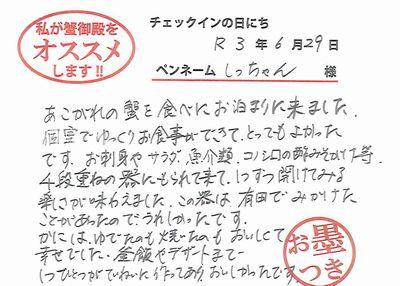 私が蟹御殿を
オススメ
します!!
チェックインの日にち
R 3 年 6 月 29 日
ペンネーム しっちゃん 様
あこがれの蟹を食べにお泊まりに来ました。
個室でゆっくりお食事ができて、とってもよかった
です。お刺身やサラダ、魚介類、コノシロの酢みそがけ等、
4段重ねの器にもられて来て、1つずつ開けてみる
楽しさが味わえました。この器は有田でみかけた
ことがあったので、うれしかったです。
かには、ゆでたのも焼いたのもおいしくて
幸せでした。釜飯やデザートまで
1つひとつがていねいに作ってあり、おいしかったです。
お墨つき